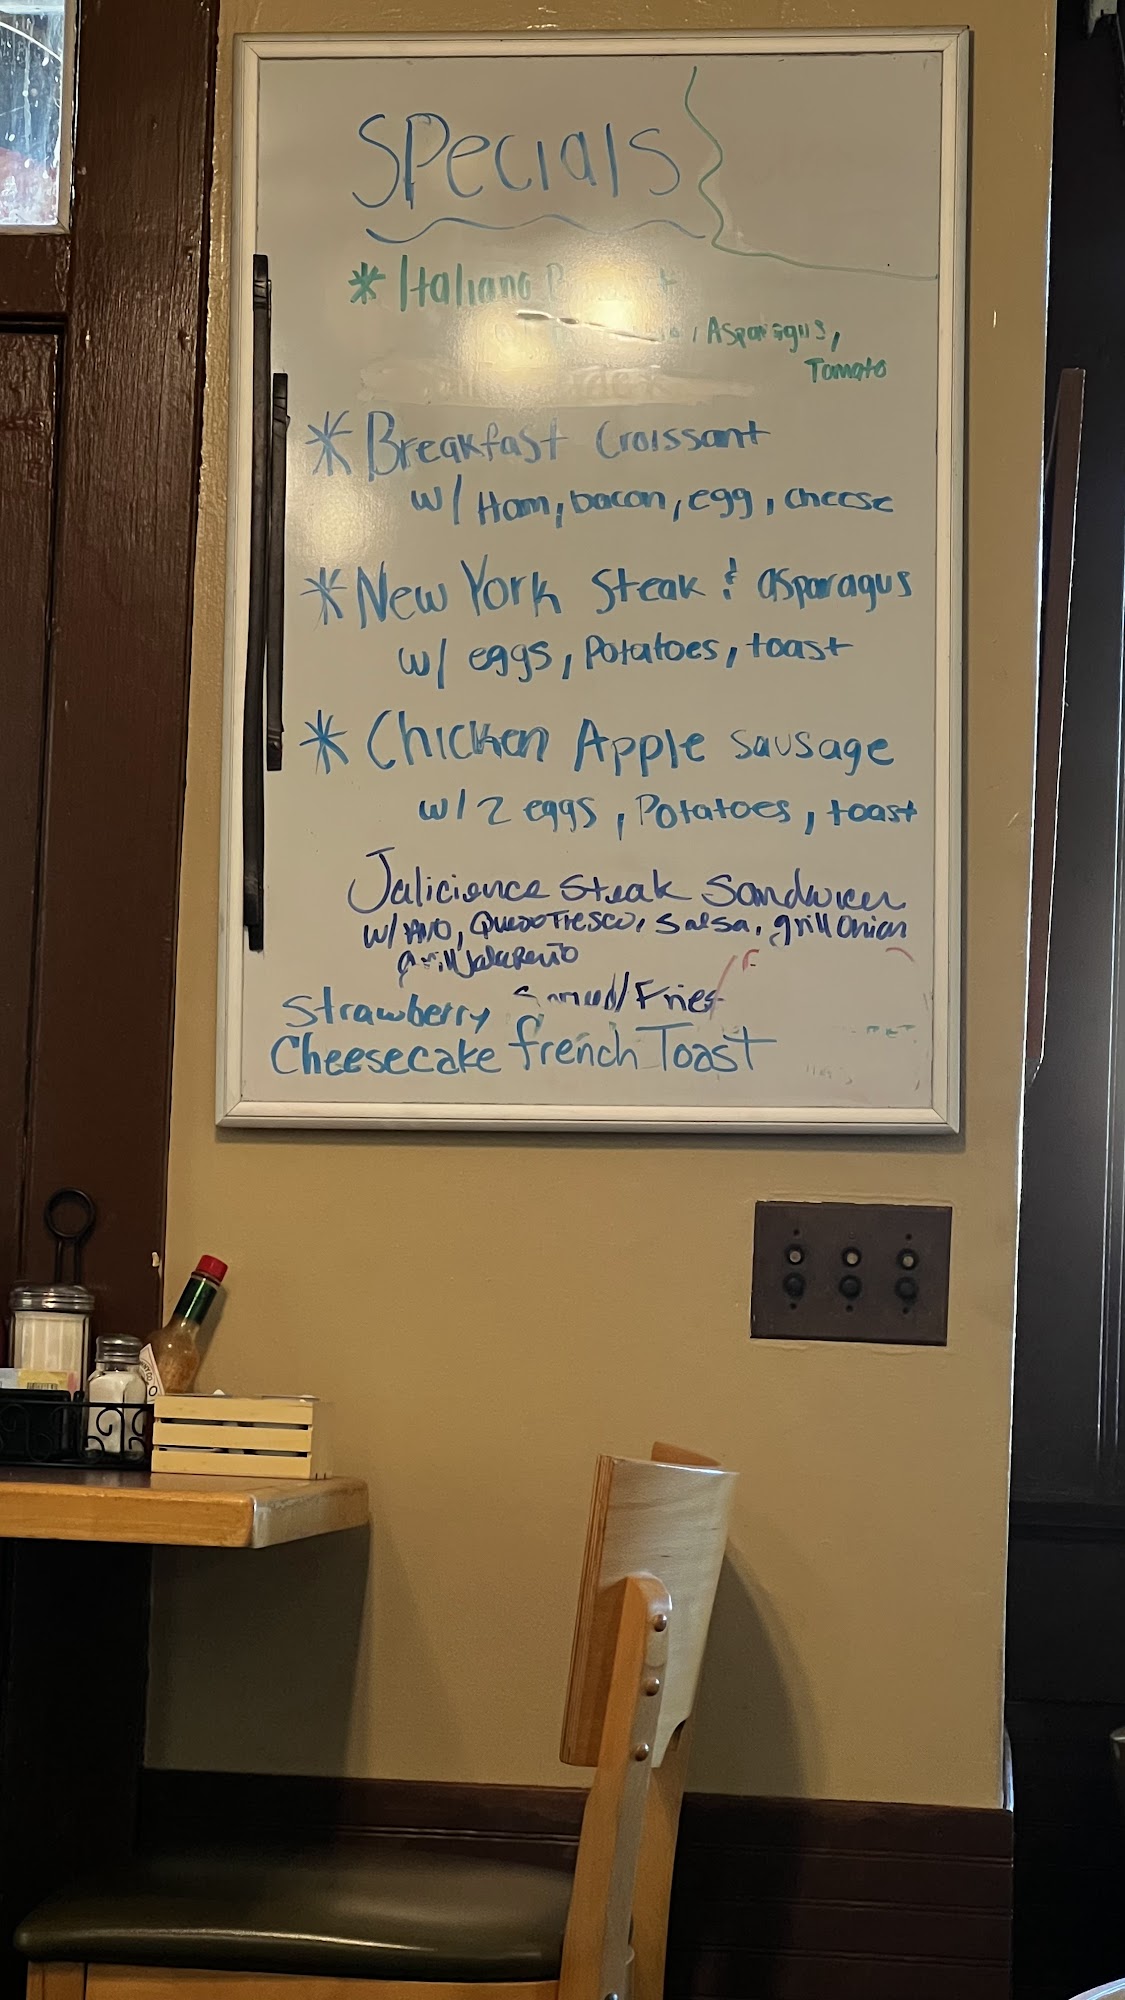 Specials
* Italiano
, Asparagus,
Tomato
* Breakfast Croissant
w/ Ham, bacon, egg, cheese
* New York Steak & asparagus
w/ eggs, Potatoes, toast
* Chicken Apple sausage
w/ 2 eggs, Potatoes, toast
Jalicience Steak Sandwich
w/ AVO, Queso Fresco, Salsa, grill onion
grill Jalapeño
/Fries
Strawberry
Cheesecake french Toast